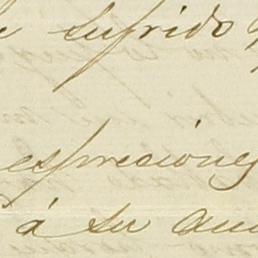 sufrido
espreciones
á su